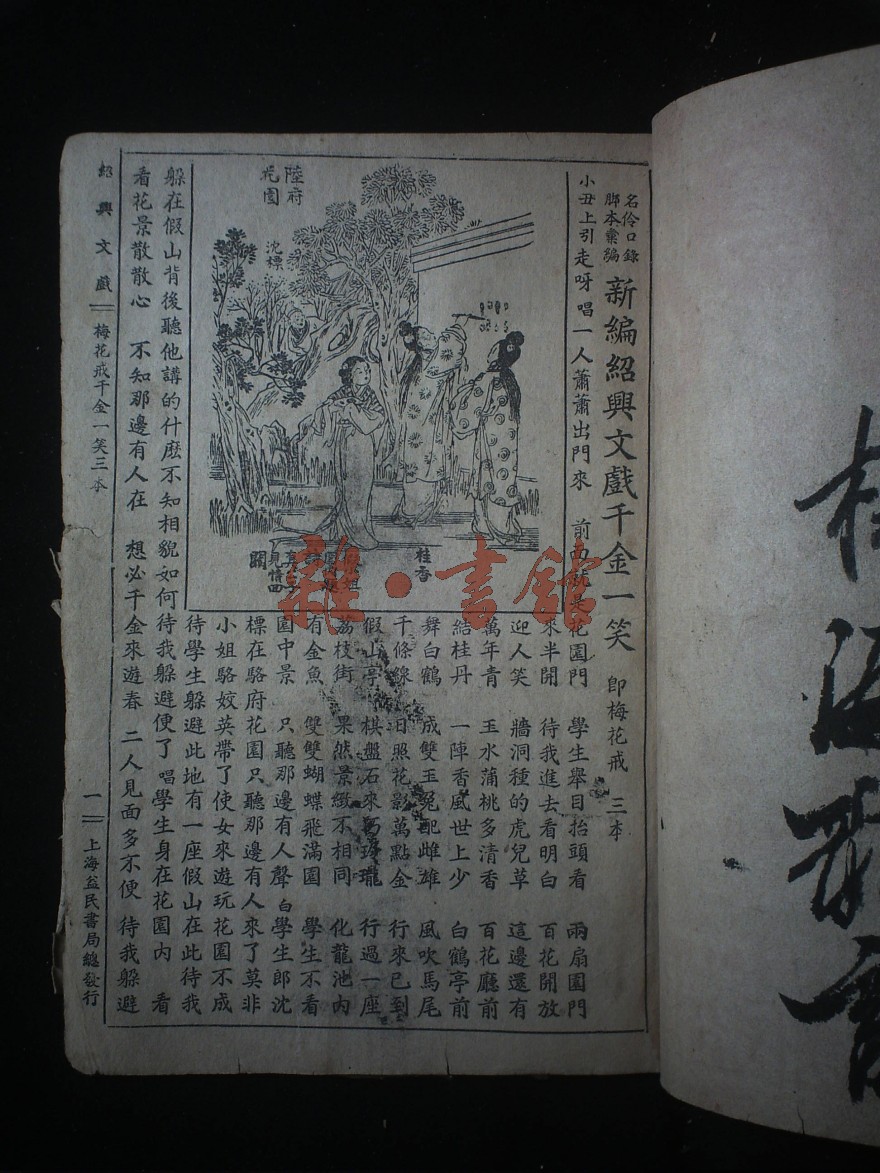 名伶口錄
脚本彙編
新編紹興文戲千金一笑 即梅花戒 三本
小丑上引走呀 唱一人蕭蕭出門來 前面就是花園門 學生舉目抬頭看 兩扇園門
來半開 待我進去看明白 百花開放
迎人笑 牆洞種的虎兒草 這邊還有
萬年青 玉水蒲桃多清香 百花廳前
結桂丹 一陣香風世上少 白鶴亭前
舞白鶴 成雙玉兔配雌雄 風吹馬尾
千條線 日照花影萬點金 行來已到
假山亭 棋盤石來巧玲瓏 行過一座
荔枝街 果然景緻不相同 化龍池內
有金魚 雙雙蝴蝶飛滿園 學生不看
園中景 只聽那邊有人聲 白學生郎沈
標在駱府花園只聽那邊有人來了莫非
小姐駱姣英帶了使女來遊玩花園不成
待學生躲避此地有一座假山在此待我
躲在假山背後聽他講的什麼不知相貌如何待我躲避便了 唱學生身在花園內 看
看花景散散心 不知那邊有人在 想必千金來遊春 二人見面多不便 待我躲避
陸府
花園
沈標
桂香
見情四
紹興文戲
梅花戒千金一笑三本
一
上海益民書局總發行
雜·書館